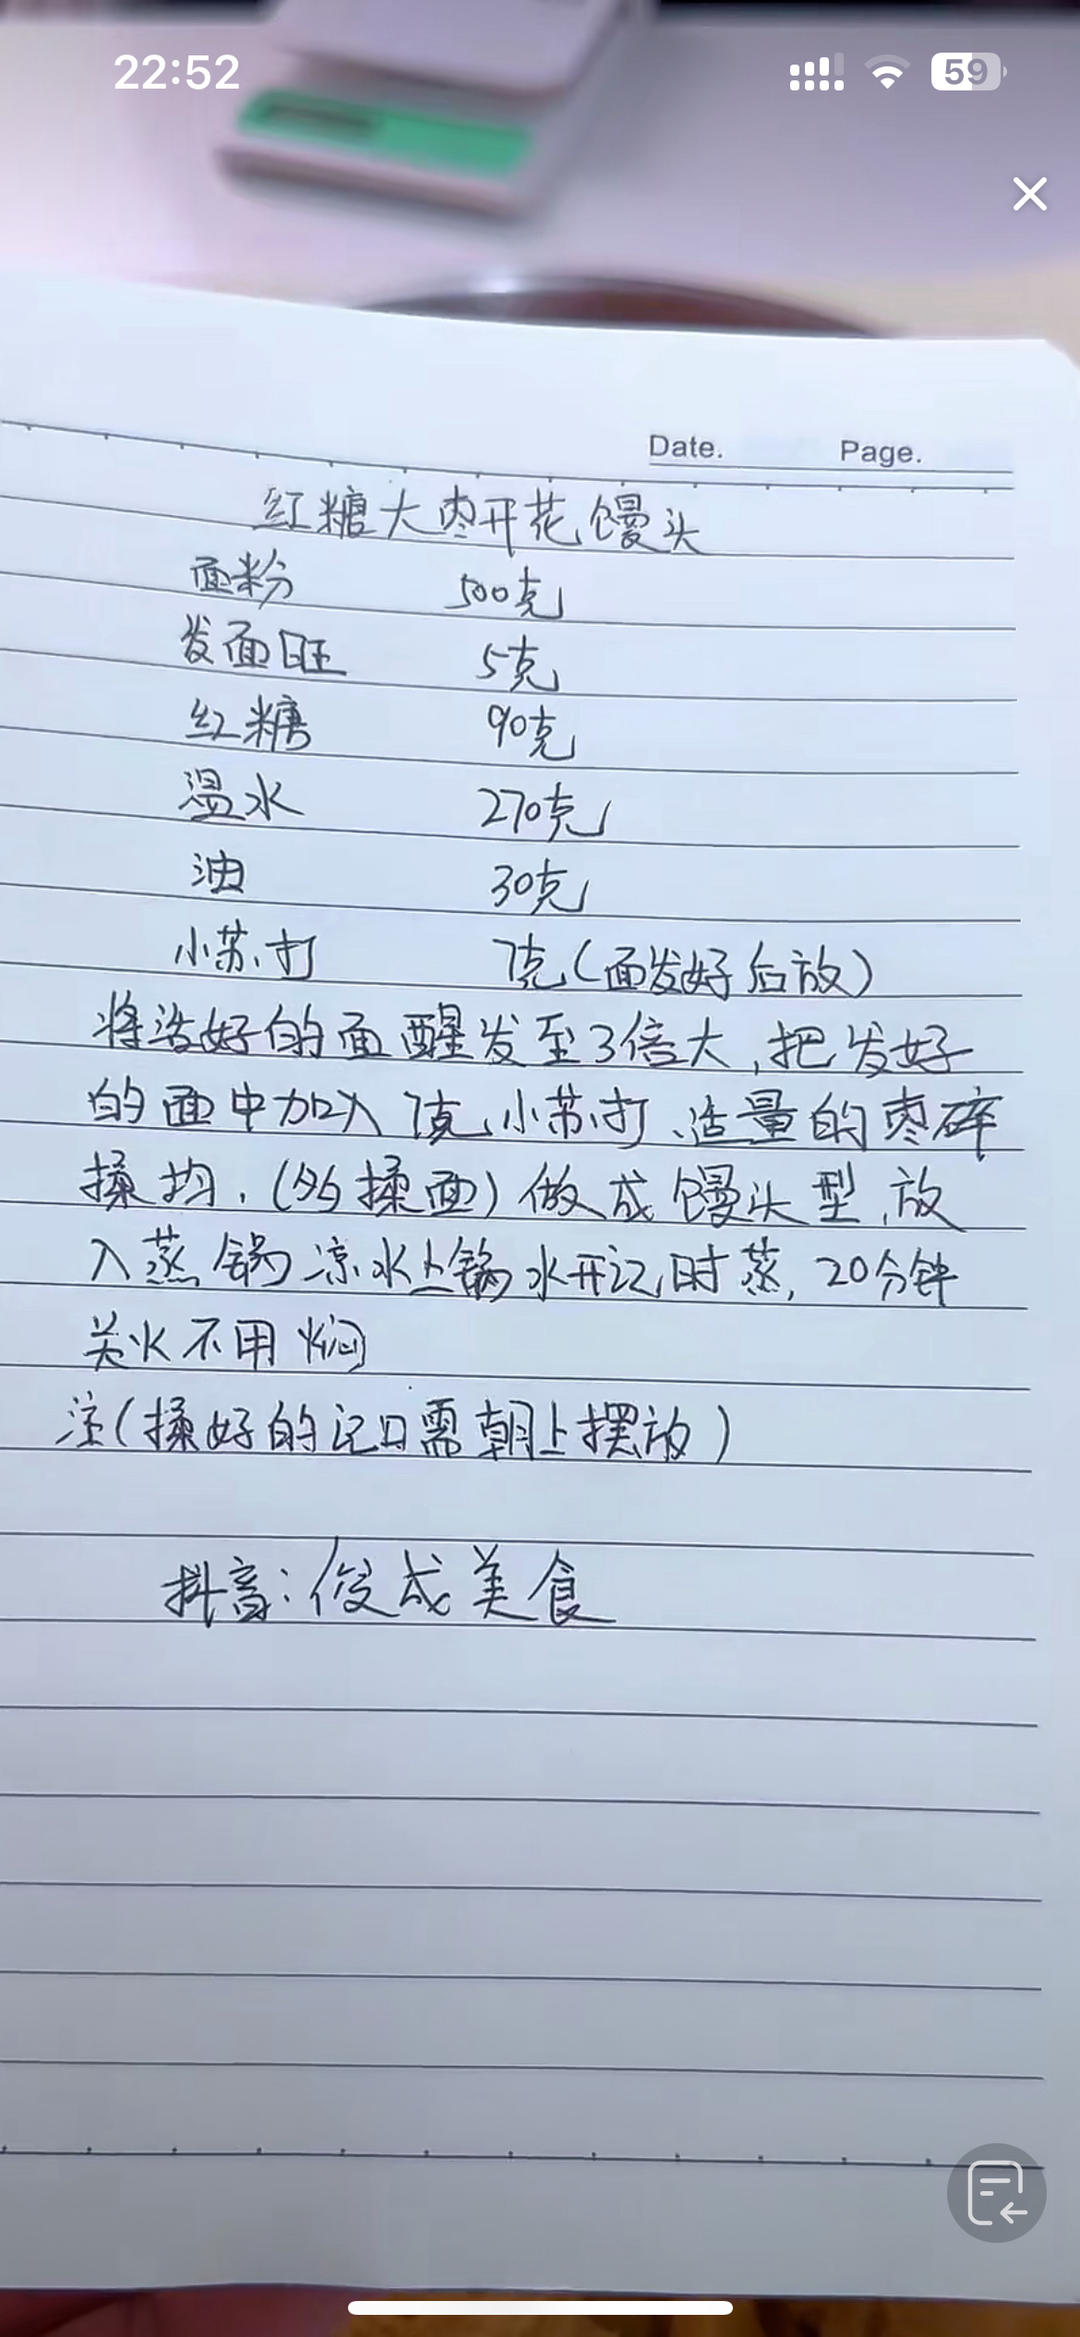 22:52
59
Date. Page.
红糖大枣开花馒头
面粉 500克
发面旺 5克
红糖 90克
温水 270克
油 30克
小苏打 7克(面发好后放)
将活好的面醒发至3倍大,把发好
的面中加入7克小苏打、适量的枣碎
揉均,(多揉面)做成馒头型,放
入蒸锅凉水上锅水开记时蒸,20分钟
关火不用焖
注(揉好的记口需朝上摆放)
抖音:俊成美食